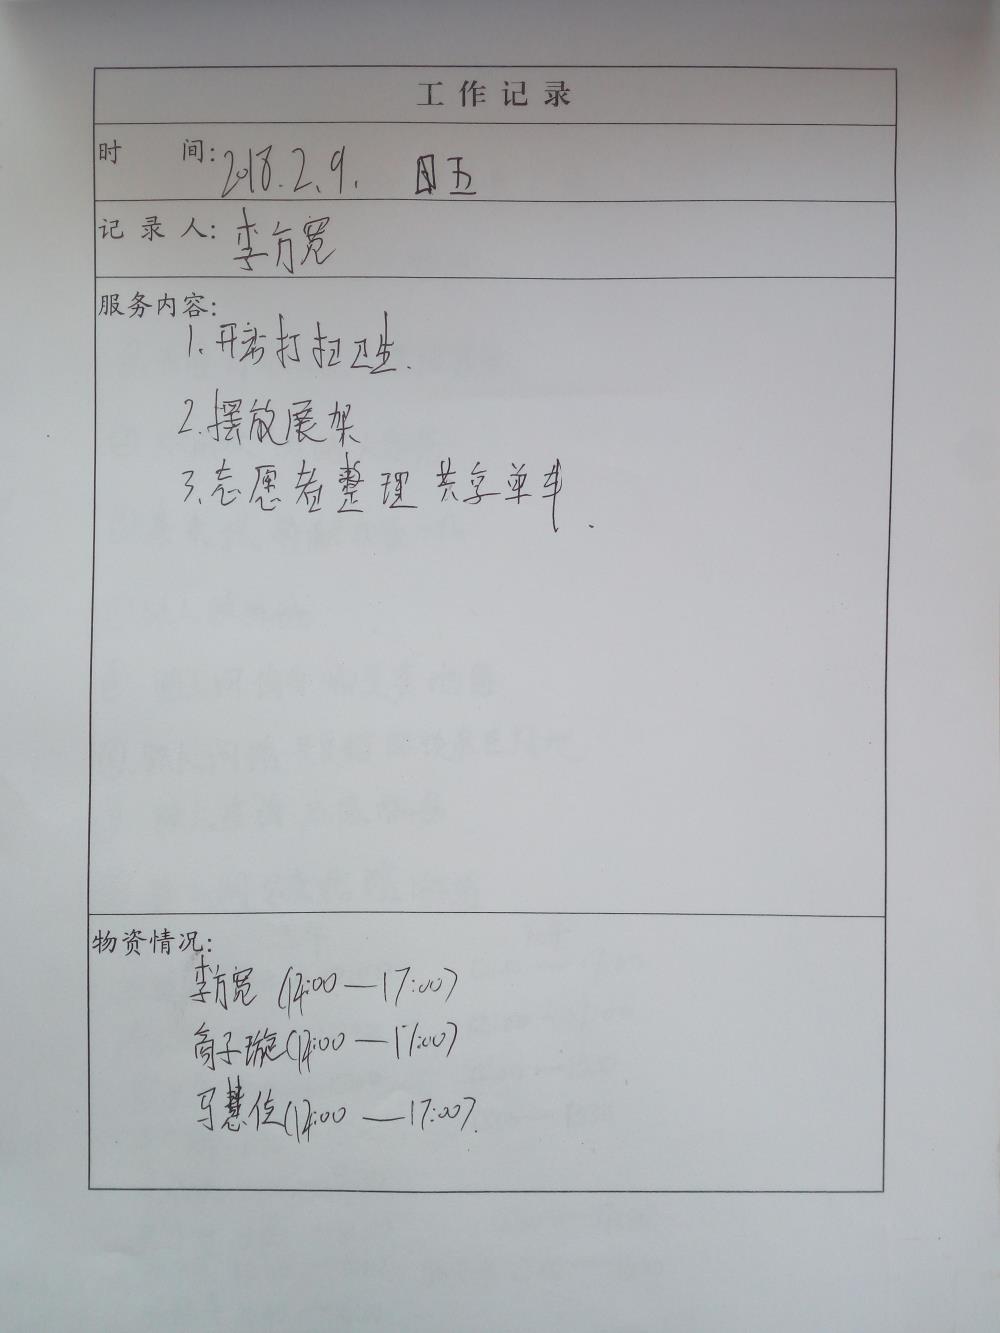 工作记录
时 间: 2018.2.9. 周五
记录人: 李方宽
服务内容:
1.开站打扫卫生.
2.摆放展架
3.志愿者整理共享单车.
物资情况:
李方宽 (14:00—17:00)
高子璇(14:00—17:00)
马慧佳(14:00—17:00).